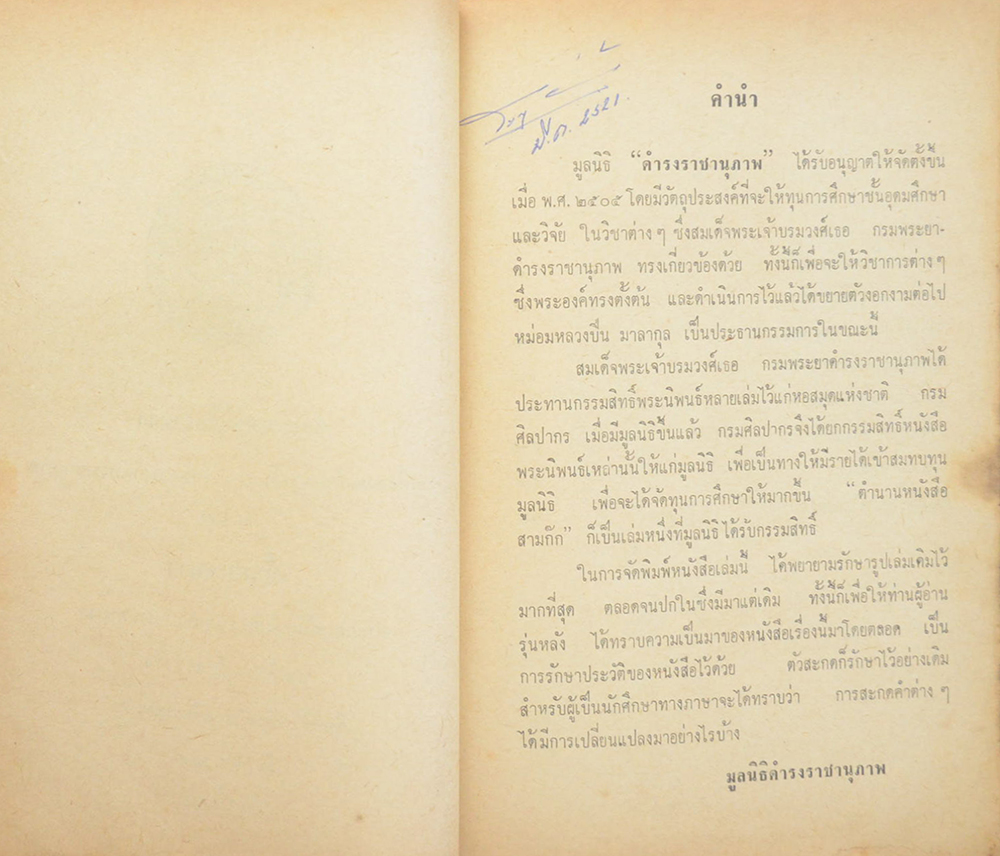 คำนำ
มี.ค. ๒๕21.
มูลนิธิ “ดำรงราชานุภาพ” ได้รับอนุญาตให้จัดตั้งขึ้น
เมื่อ พ.ศ. ๒๕๐๕ โดยมีวัตถุประสงค์ที่จะให้ทุนการศึกษาชั้นอุดมศึกษา
และวิจัย ในวิชาต่าง ๆ ซึ่งสมเด็จพระเจ้าบรมวงศ์เธอ กรมพระยา-
ดำรงราชานุภาพ ทรงเกี่ยวข้องด้วย ทั้งนี้ก็เพื่อจะให้วิชาการต่าง ๆ
ซึ่งพระองค์ทรงตั้งต้น และดำเนินการไว้แล้วได้ขยายตัวงอกงามต่อไป
หม่อมหลวงปิ่น มาลากุล เป็นประธานกรรมการในขณะนี้
สมเด็จพระเจ้าบรมวงศ์เธอ กรมพระยาดำรงราชานุภาพได้
ประทานกรรมสิทธิ์พระนิพนธ์หลายเล่มไว้แก่หอสมุดแห่งชาติ กรม
ศิลปากร เมื่อมีมูลนิธิขึ้นแล้ว กรมศิลปากรจึงได้ยกกรรมสิทธิ์หนังสือ
พระนิพนธ์เหล่านั้นให้แก่มูลนิธิ เพื่อเป็นทางให้มีรายได้เข้าสมทบทุน
มูลนิธิ เพื่อจะได้จัดทุนการศึกษาให้มากขึ้น “ตำนานหนังสือ
สามก๊ก” ก็เป็นเล่มหนึ่งที่มูลนิธิได้รับกรรมสิทธิ์
ในการจัดพิมพ์หนังสือเล่มนี้ ได้พยายามรักษารูปเล่มเดิมไว้
มากที่สุด ตลอดจนปกในซึ่งมีมาแต่เดิม ทั้งนี้ก็เพื่อให้ท่านผู้อ่าน
รุ่นหลัง ได้ทราบความเป็นมาของหนังสือเรื่องนี้มาโดยตลอด เป็น
การรักษาประวัติของหนังสือไว้ด้วย ตัวสะกดก็รักษาไว้อย่างเดิม
สำหรับผู้เป็นนักศึกษาทางภาษาจะได้ทราบว่า การสะกดคำต่าง ๆ
ได้มีการเปลี่ยนแปลงมาอย่างไรบ้าง
มูลนิธิดำรงราชานุภาพ